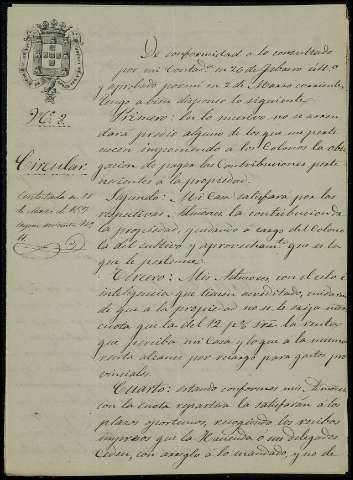 De conformidad á lo consultado
por mi Contad.ª en 26 de Febrero últ.º
y aprobado por mí en 2 de Marzo corriente,
tengo á bien disponer lo siguiente
Nº 2.
Primero: En lo sucesivo no se arren
dará predio alguno de los que me perte
necen imponiendo á los Colonos la obli
Circular
gacion de pagar las Contribuciones perte
necientes á la propiedad.
Contestada en 18
de Marzo de 1851
segun minuta Nº
Segundo: Mi Casa satisfará por las
respectivas Admones la contribucion de
la propiedad, quedando á cargo del Colono
la del cultivo y aprovechamto que es la
que le pertenece.
Tercero: Mis Admores, con el celo é
inteligencia que tienen acreditado, cuidaran
de que á la propiedad no se le exija mas
cuota que la del 12 p% sre la renta
que perciba mi Casa y lo que á la misma
renta alcance por recargo para gastos pro
vinciales.
Cuarto: estando conformes mis Admores
con la cuota repartida la satisfarán á los
plazos oportunos, recogiendo los recibos
impresos que la Hacienda ó sus delegados
deben, con arreglo á lo mandado, y no de